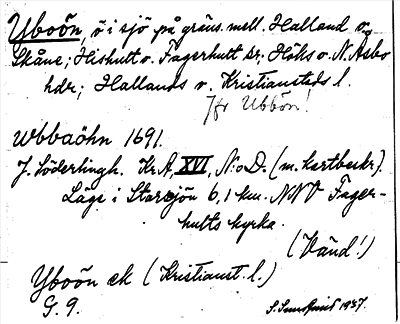 Uboön, ö i sjö på gräns. mell. Halland o.
Skåne; Hishult o. Fagerhult sr; Höks o. N. Åsbo
hdr; Hallands o. Kristianstads l.
Jfr Ubbön!
Wbbaöhn 1691.
J. Söderlingh. Kr.A. XVI, N:o D. (m. kartbeskr).
Läge i Starsjön 6,1 km. NNV Fager-
hults kyrka.
(Vänd!)
Yboön ek (Kristianst. l.)
G. 9.
1937.